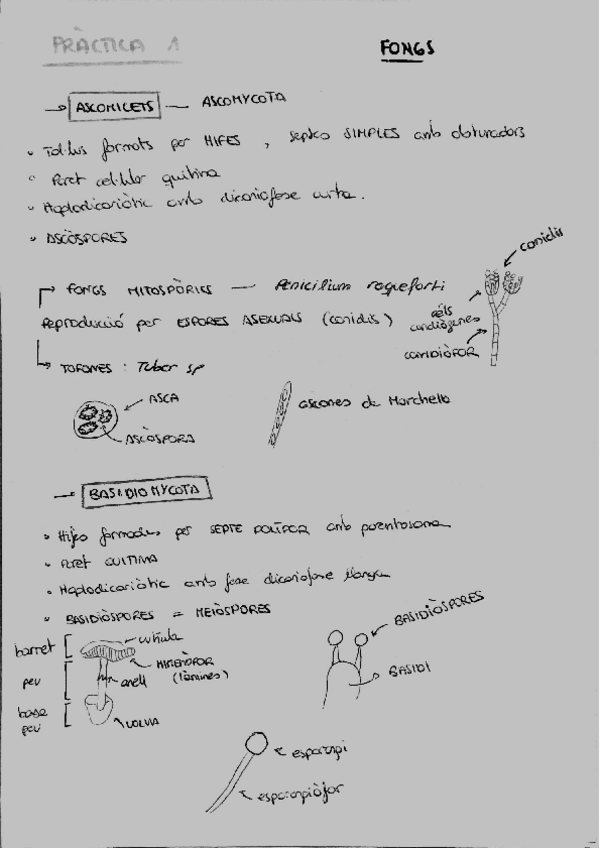 PRÀCTICA 1
FONGS
→ ASCOMICETS — ASCOMYCOTA
• Tal·lus formats per HIFES, septes SIMPLES amb obturadors
• Paret cel·lular quitina
• Haplodicariòtic amb dicariofase curta.
• ASCÒSPORES
FONGS MITOSPÒRICS — Penicilium roqueforti
Reproducció per ESPORES ASEXUALS (conidis)
conidis
cèls
conidiògenes
CONIDIÒFOR
TOFONES : Tuber sp
ASCA
ASCÒSPORA
ascones de Morchella
→ BASIDIOMYCOTA
• Hifes formades per SEPTE DOLÍPOR amb parentosoma
• Paret QUITINA
• Haplodicariòtic amb fase dicariofase llarga
• BASIDIÒSPORES = MEIÒSPORES
barret
peu
base
peu
cutícula
HIMENÒFOR
(làmines)
anell
VOLVA
BASIDIÒSPORES
BASIDI
esporangi
esporangiòfor